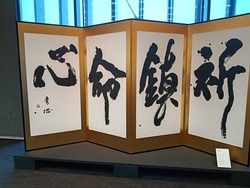 祈
鎮
命
心